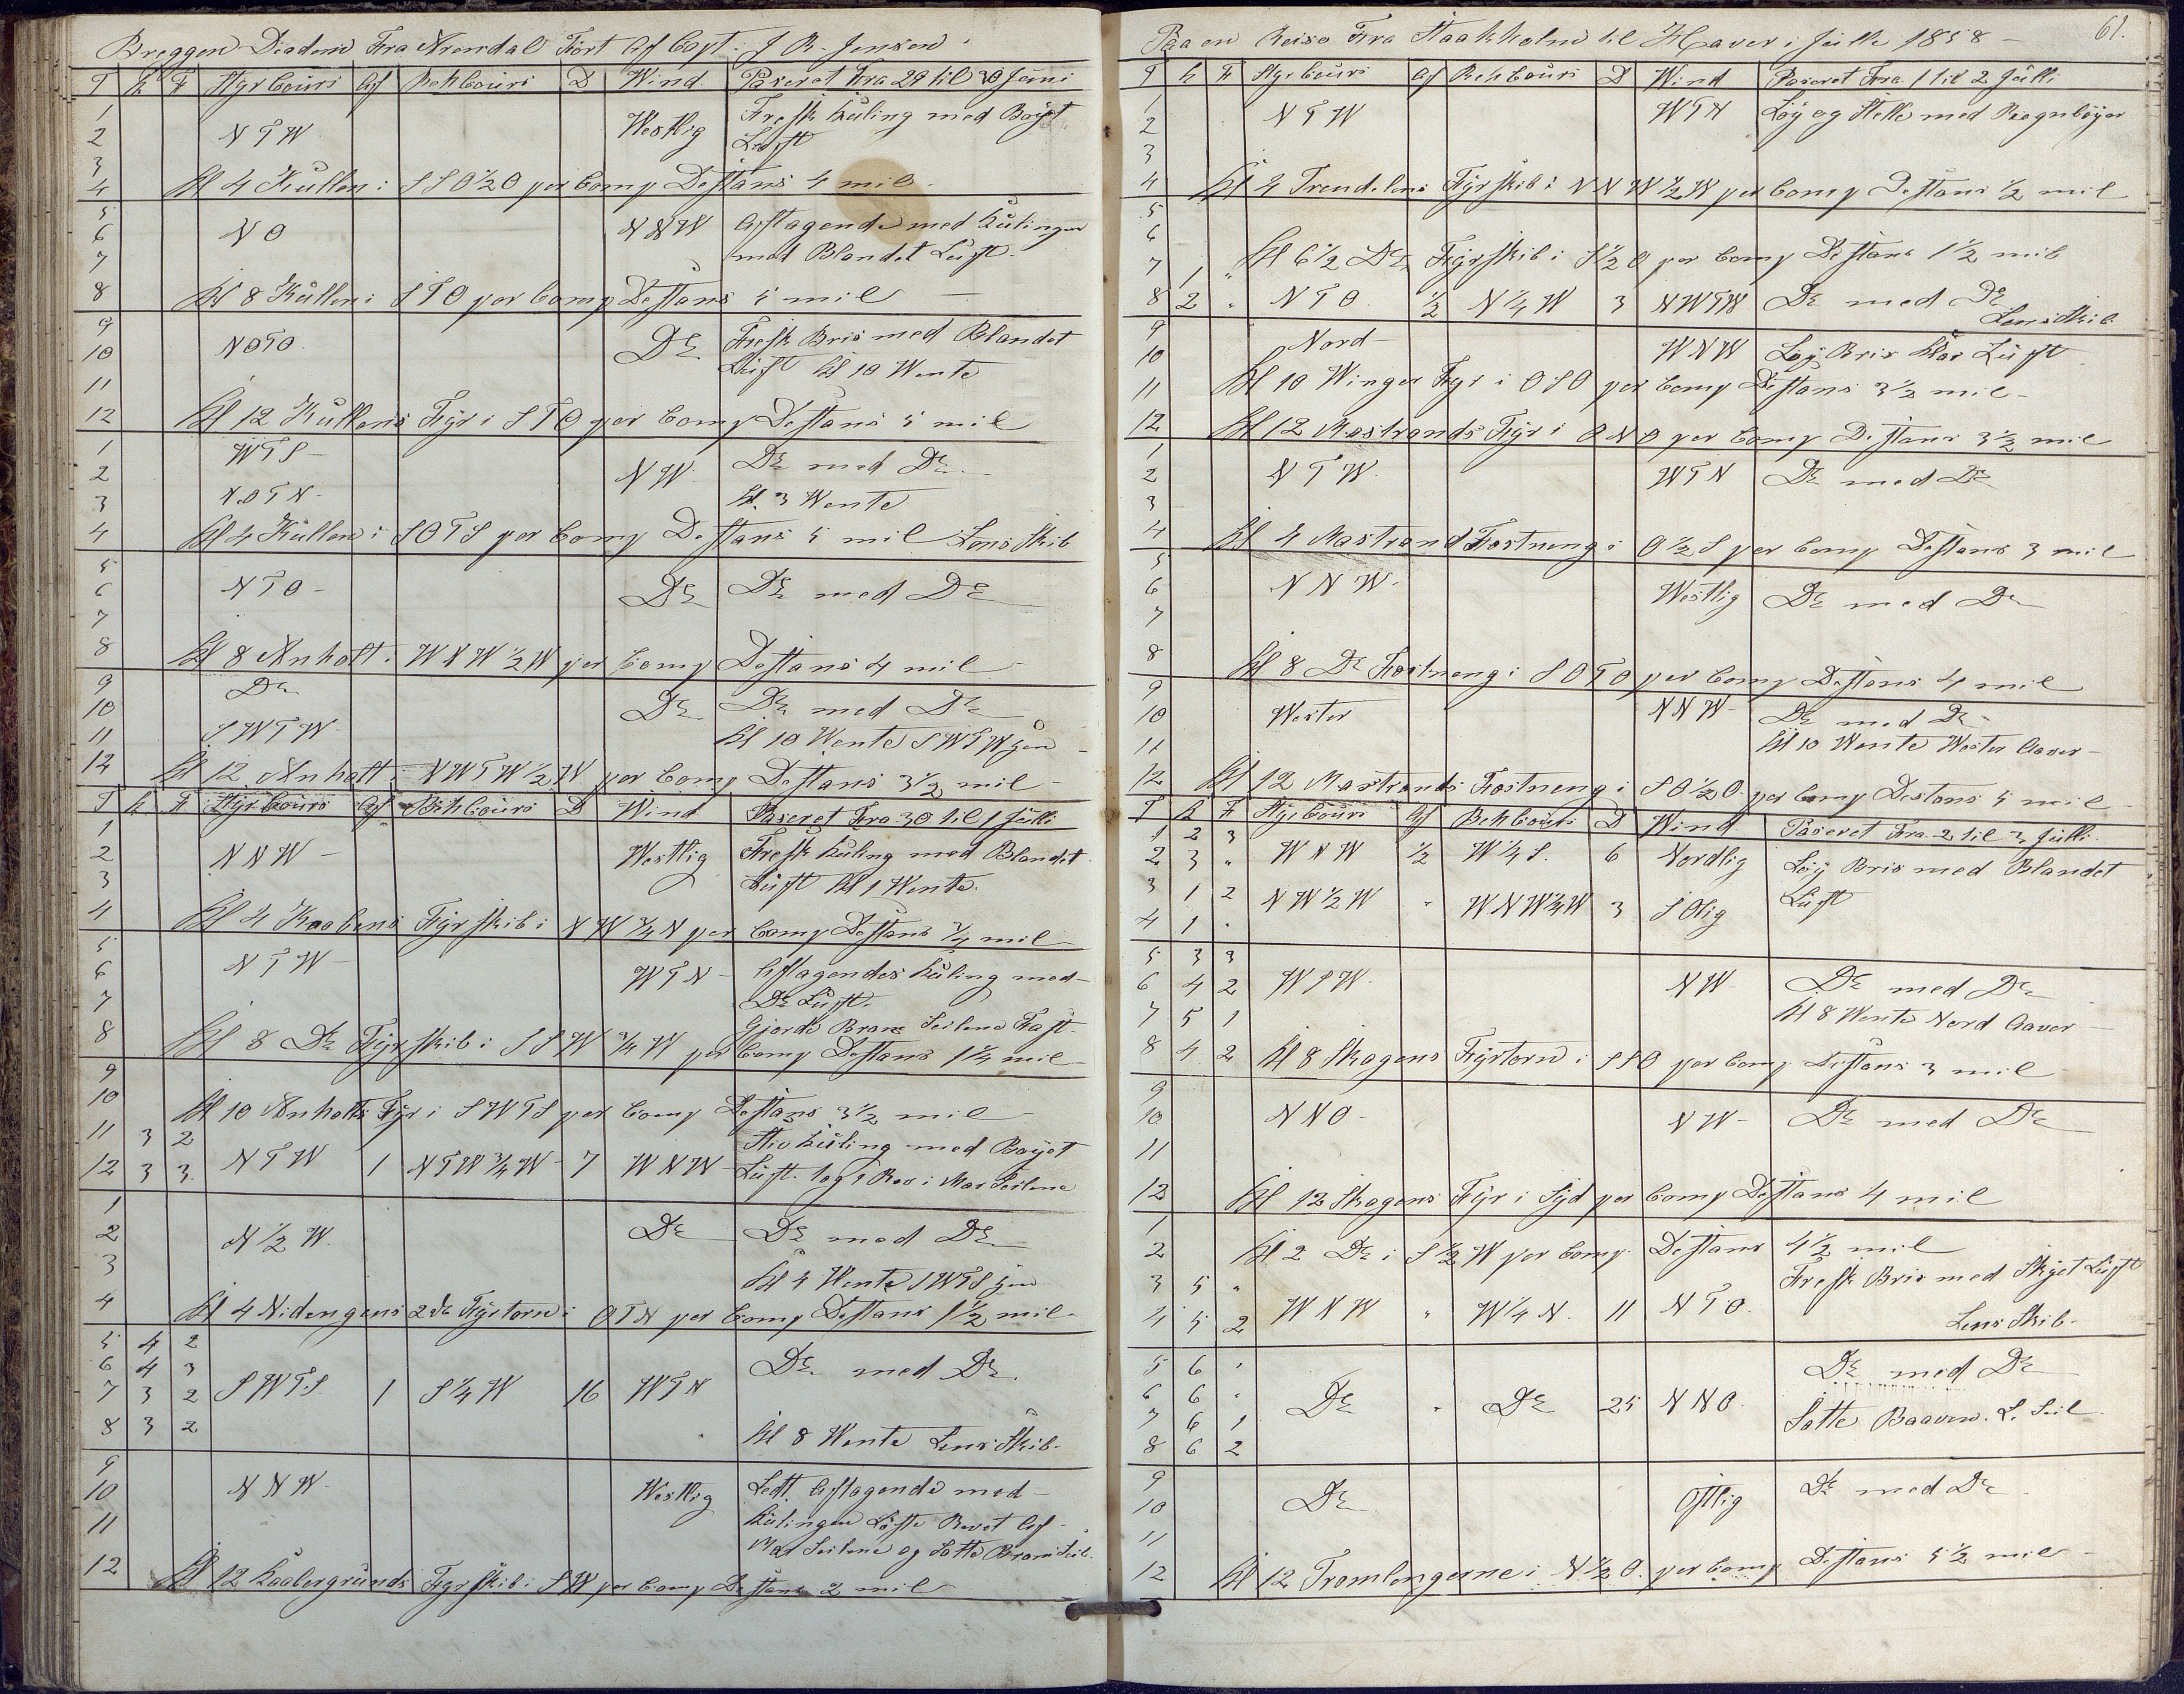 Breggen Diadem Fra Arendal Fört Af Capt. J R. Jensen
T K F Styrcours Af Behcours D Wind. Paseret Fra 29 til 30 Juni
1
2 NTW Westlig Fresk Kuling med Böyet
Luft
3
4 Kl 4 Kullen i SSO½O per Comp Destans 4 mil
5
6 NO NNW Aftagende med Kulingen
7 med Blandet Luft.
8 Kl 8 Kullen i STO per Comp Destans 5 mil
9
10 NOTO. Do Fresk Bris med Blandet
Luft Kl 10 Wente
11
12 Kl 12 Kullens Fyr i STO per Comp Destans 5 mil
1 WTS
2 NW. Do med Do
3 NOTN Kl. 3 Wente
4 Kl 4 Kullen i SOTS per Comp Destans 5 mil Lens Skib
5
6 NTO Do Do med Do
7
8 Kl 8 Anholt i WNW½W per Comp Destans 4 mil
9 Do
10 Do Do med Do
11 SWTW Kl 10 Wente SWTW
12 Kl 12 Anholt i NWTW½W per Comp Destans 3½ mil
T K F Styrcours Af Behcours D Wind Paseret Fra 30 til 1 Julli
1
2 NNW Westlig Fresk Kuling med Blandet
3 Luft Kl 1 Wente.
4 Kl 4 Kaabens Fyrskib i NW¾N per Comp Destans ¾ mil
5
6 NTW WTN Aftagendes Kuling med
7 Do Luft.
Gjorde Bram Seilene Fast
8 Kl 8 Do Fyrskib i SSW¾W per Comp Destans 1¼ mil
9
10 Kl 10 Anholts Fyr i SWTS per Comp Destans 3½ mil
11 3 2 Stiv Kuling med Böyet
12 3 3 NTW 1 NTW¾W 7 WNW Luft. 1 og 2 Rev i Mars Seilene
1
2 N½W. Do Do med Do
3 Kl 4 Wente SWTS
4 Kl 4 Nidengens 2de Fyrtorn i OTN per Comp Destans 1½ mil
5 4 2
6 4 3 Do med Do
7 3 2 SWTS. 1 S¼W 16 WTN
8 3 2 Kl 8 Wente Lens Skib.
9
10 NNW Westlig Ledt. Aftagende med
11 Kulingen Löste Revet Af
Mars Seilene og Satte Bram Seil.
12 Kl 12 Kaabergrunds Fyrskib i SW per Comp Destans 2 mil
Paa en Reise Fra Staakholm til Haver i Julli 1858 61.
T K F Styrcours Af Behcours D Wind Paseret Fra 1 til 2 Julli
1
2 NTW WTN Löy og Stelle med Regnböyer
3
4 Kl 4 Trendelens Fyrskib i NNW½W per Comp Destans ½ mil
5
6 Kl 6½ Do Fyrskib i S½O per Comp Destans 1½ mil
7 1 "
8 2 " NTO ½ N¼W 3 NWTW Do med Do
Lens Skib
9 Nord
10 WNW Löy Bris klar Luft
11 Kl 10 Winger Fyr i OSO per Comp Destans 3½ mil
12 Kl 12 Mastrands Fyr i ONO per Comp Destans 3½ mil
1
2 NTW. WTN Do med Do
3
4 Kl 4 Mastrand Festneng i O½S per Comp Destans 3 mil
5
6 NNW. Westlig Do med Do
7
8 Kl 8 Do Festneng i SOTO per Comp Destans 4 mil
9
10 Wester NNW Do med Do
11 Kl 10 Wente Wester Aaver
12 Kl 12 Mastrands Festneng i SO½O. per Comp Destans 5 mil
T K F Styrcours Af Behcours D Wind Paseret Fra 2 til 3 Julli.
1 2 3
2 3 " WNW ½ W¼S. 6 Nordlig Löy Bris med Blandet
3 1 2 NW½W " WNW¾W 3 SOlig Luft
4 1 "
5 3 3
6 4 2 WSW NW Do med Do
7 5 1 Kl 8 Wente Nord Aaver
8 4 2 Kl 8 Skagens Fyrtorn i SSO per Comp Destans 3 mil
9
10 NNO NW Do med Do
11
12 Kl 12 Skagens Fyr i Syd per Comp Destans 4 mil
1
2 Kl 2 Do i S½W per Comp Destans 4½ mil
3 5 " Fresk Bris med Skyet Luft
4 5 2 WNW " W¼N. 11 NTO. Lens Skib
5 6 " Do med Do
6 6 " Do " Do 25 NNO.
7 6 1 Satte L. Seil
8 6 2
9
10 Do Ostlig Do med Do
11
12 Kl 12 Tromlengerne i N½O. per Comp Destans 5½ mil